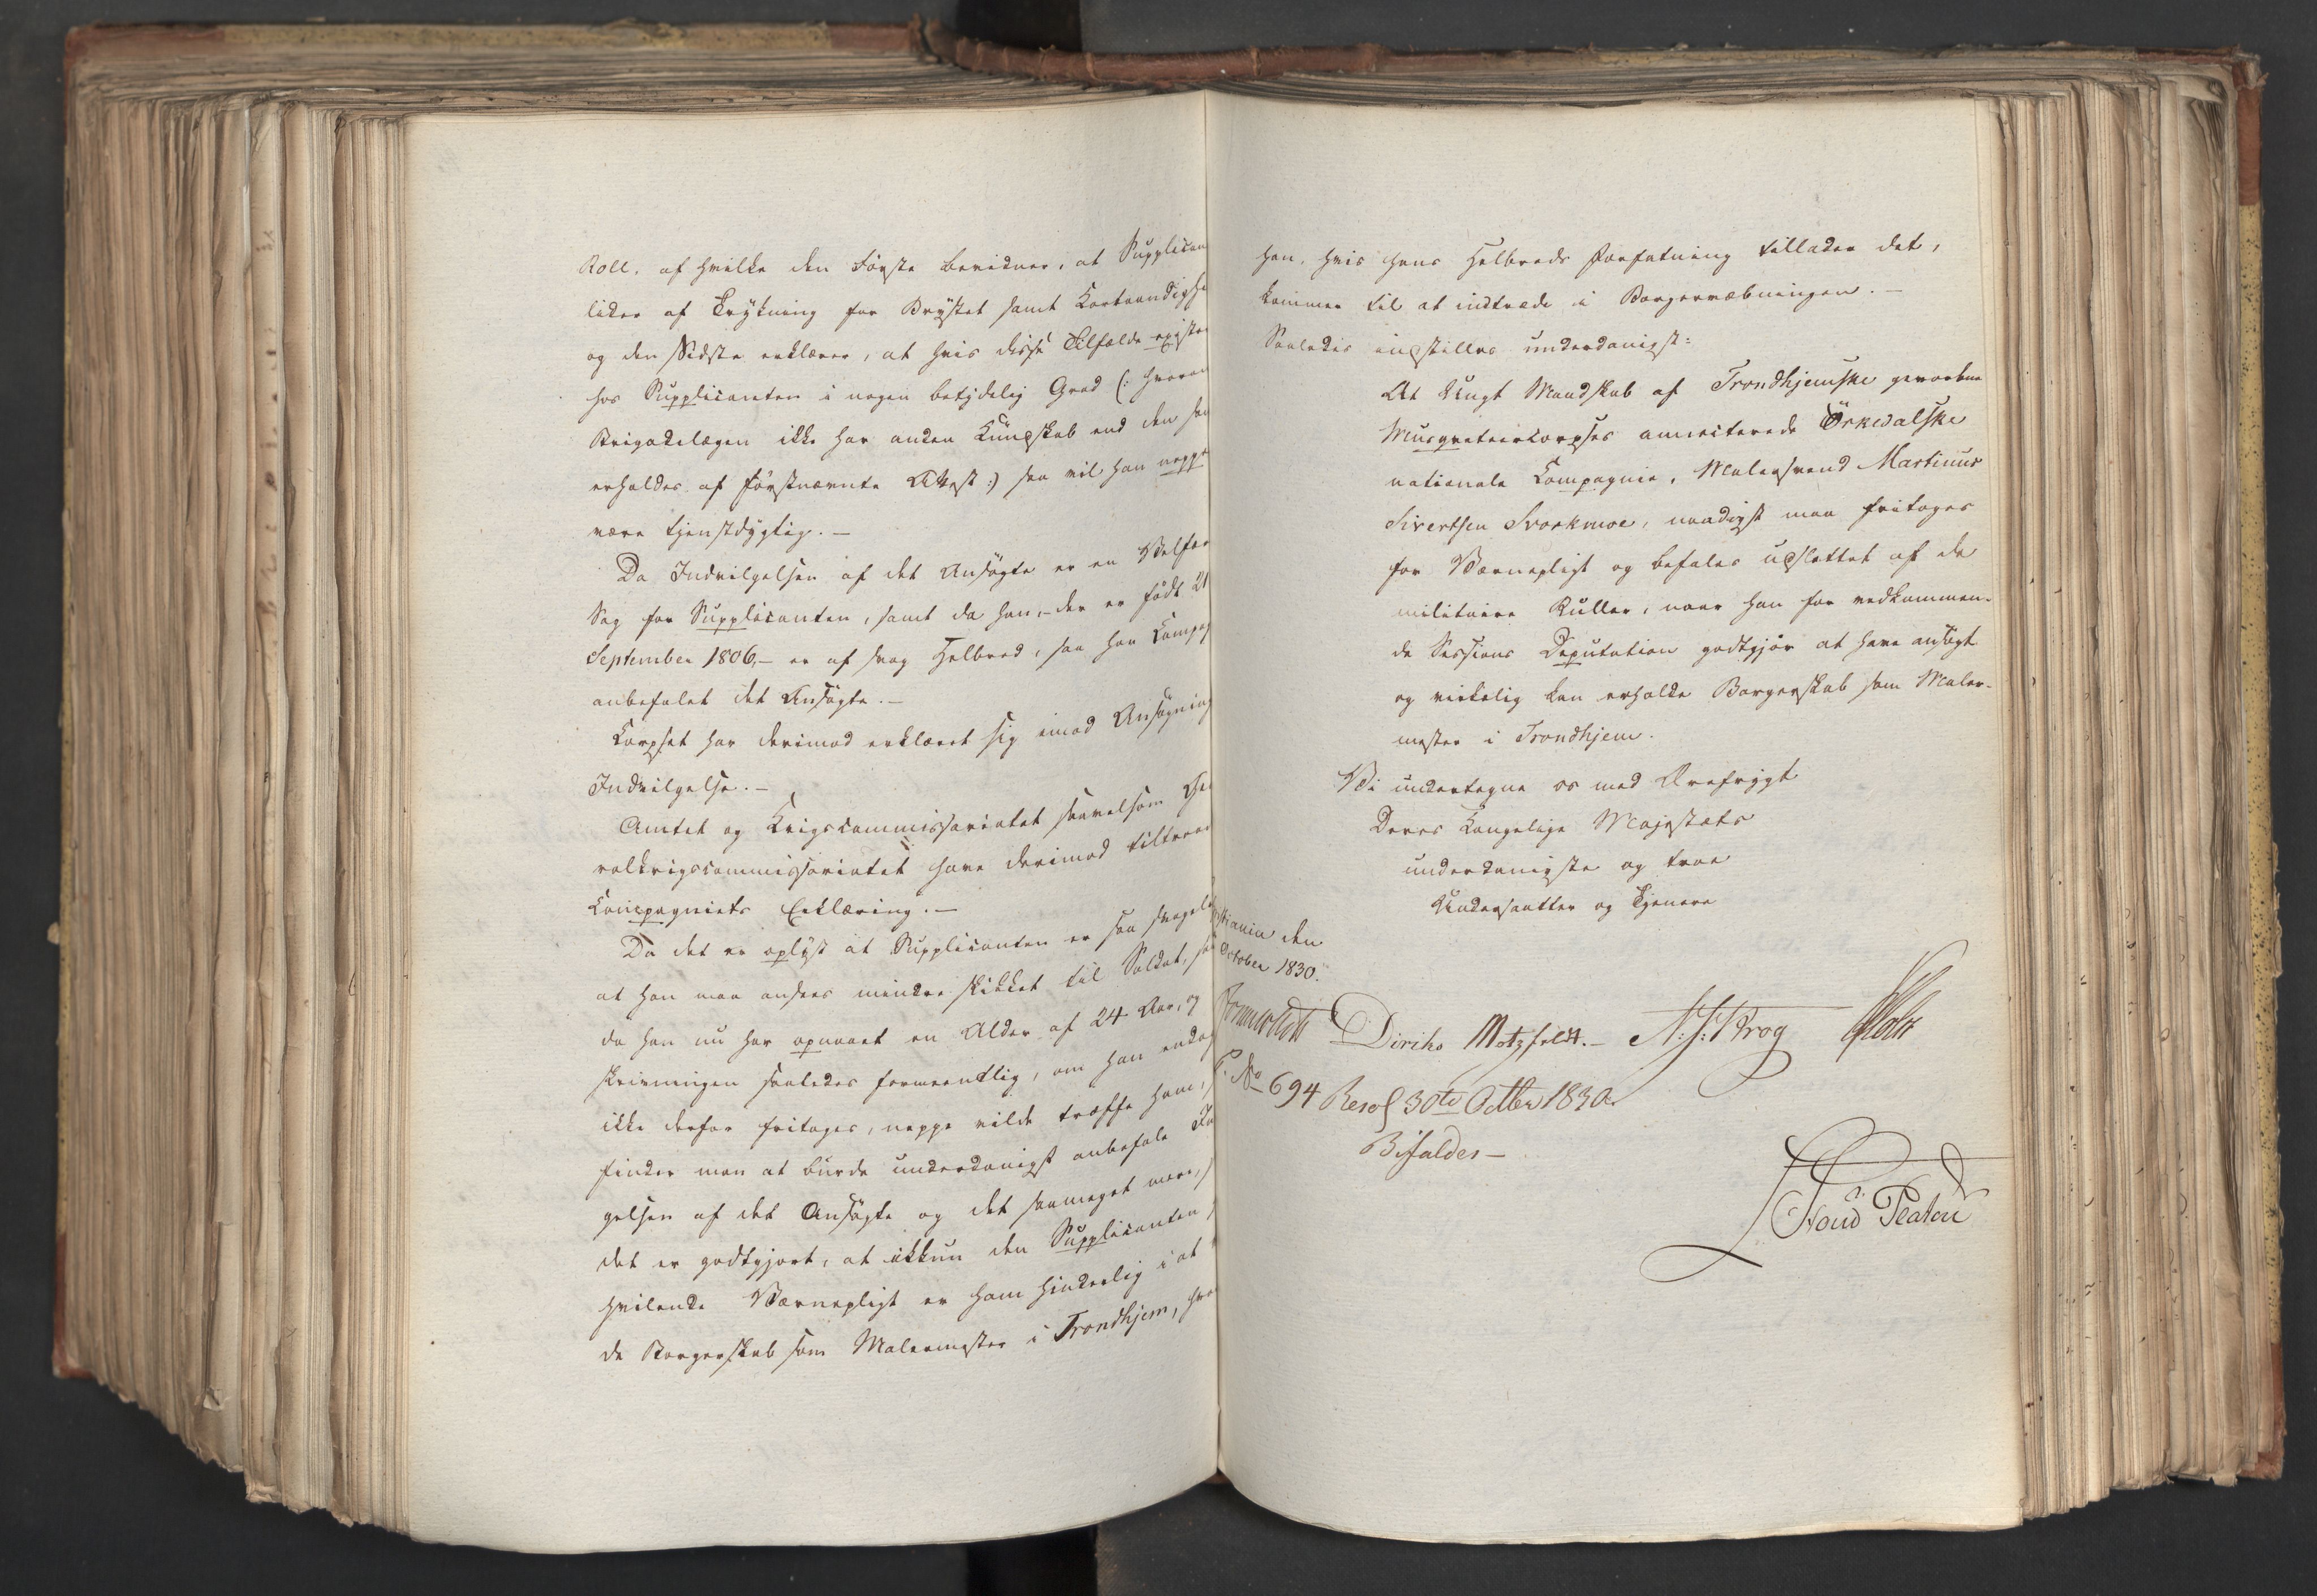 Roll, af hvilke den første bevidner, at Supplican
lider af Trykning for Brystet samt Kortaandighe
og den Sidste erklærer, at hvis disse Tilfælde existe
hos Supplicanten i nogen betydelig Grad (: hvorom
Brigadelægen ikke har anden Kundskab end den han
erholdes af førstnævnte Attest :) saa vil han neppe
være tjenstdygtig. —
Da Indvilgelsen af det Ansøgte er en Velfær
Sag for Supplicanten, samt da han, – der er født 21
September 1806, – er af svag Helbred, saa har Compag
anbefalet det Ansøgte. —
Corpset har derimod erklæret sig imod Ansøgning
Indvilgelse. —
Amtet og Krigscommissariatet saavelsom Gene
ralkrigscommissariatet have derimod tiltraad
Compagniets Erklæring. —
Da det er oplyst at Supplicanten er saa svagelig
at han maa ansees mindre skikket til Soldat, sa
da han nu har opnaaet en Alder af 24 Aar, og
skrivningen saaledes formeentlig, om han endog
ikke derfor fritages, neppe vilde træffe ham,
finder man at burde underdanigst anbefale In
gelsen af det Ansøgte og det saameget mere, s
det er godtgjort, at ikkun den Supplicanten
hvilende Værnepligt er ham hinderlig i at
de Borgerskab som Malermester i Trondhjem, hvo
han, hvis hans Helbreds Forfatning tillader det,
kommer til at indtræde i Borgervæbningen. —
Saaledes indstilles underdanigst:
At Ungt Mandskab af Trondhjemske gevorbne
Musqveteercorpses annecterede Örkedalske
nationale Compagnie, Malersvend Martinus
Sivertsen Svorkmoe, naadigst maa fritages
for Værnepligt og befales udslettet af de
militaire Ruller, naar han for vedkommen-
de Sessions Deputation godtgjør at have ansøgt
og virkelig kan erholde Borgerskab som Maler-
mester i Trondhjem.
Vi undertegne os med Ærefrygt
Deres Kongelige Majestæts
underdanigste og troe
Undersaatter og Tjenere
istiania den
October 1830.
Diriks Motzfeldt. – N. J. Krog Holst
P. No 694 Resol 30te Octbr 1830.
Bifaldes —